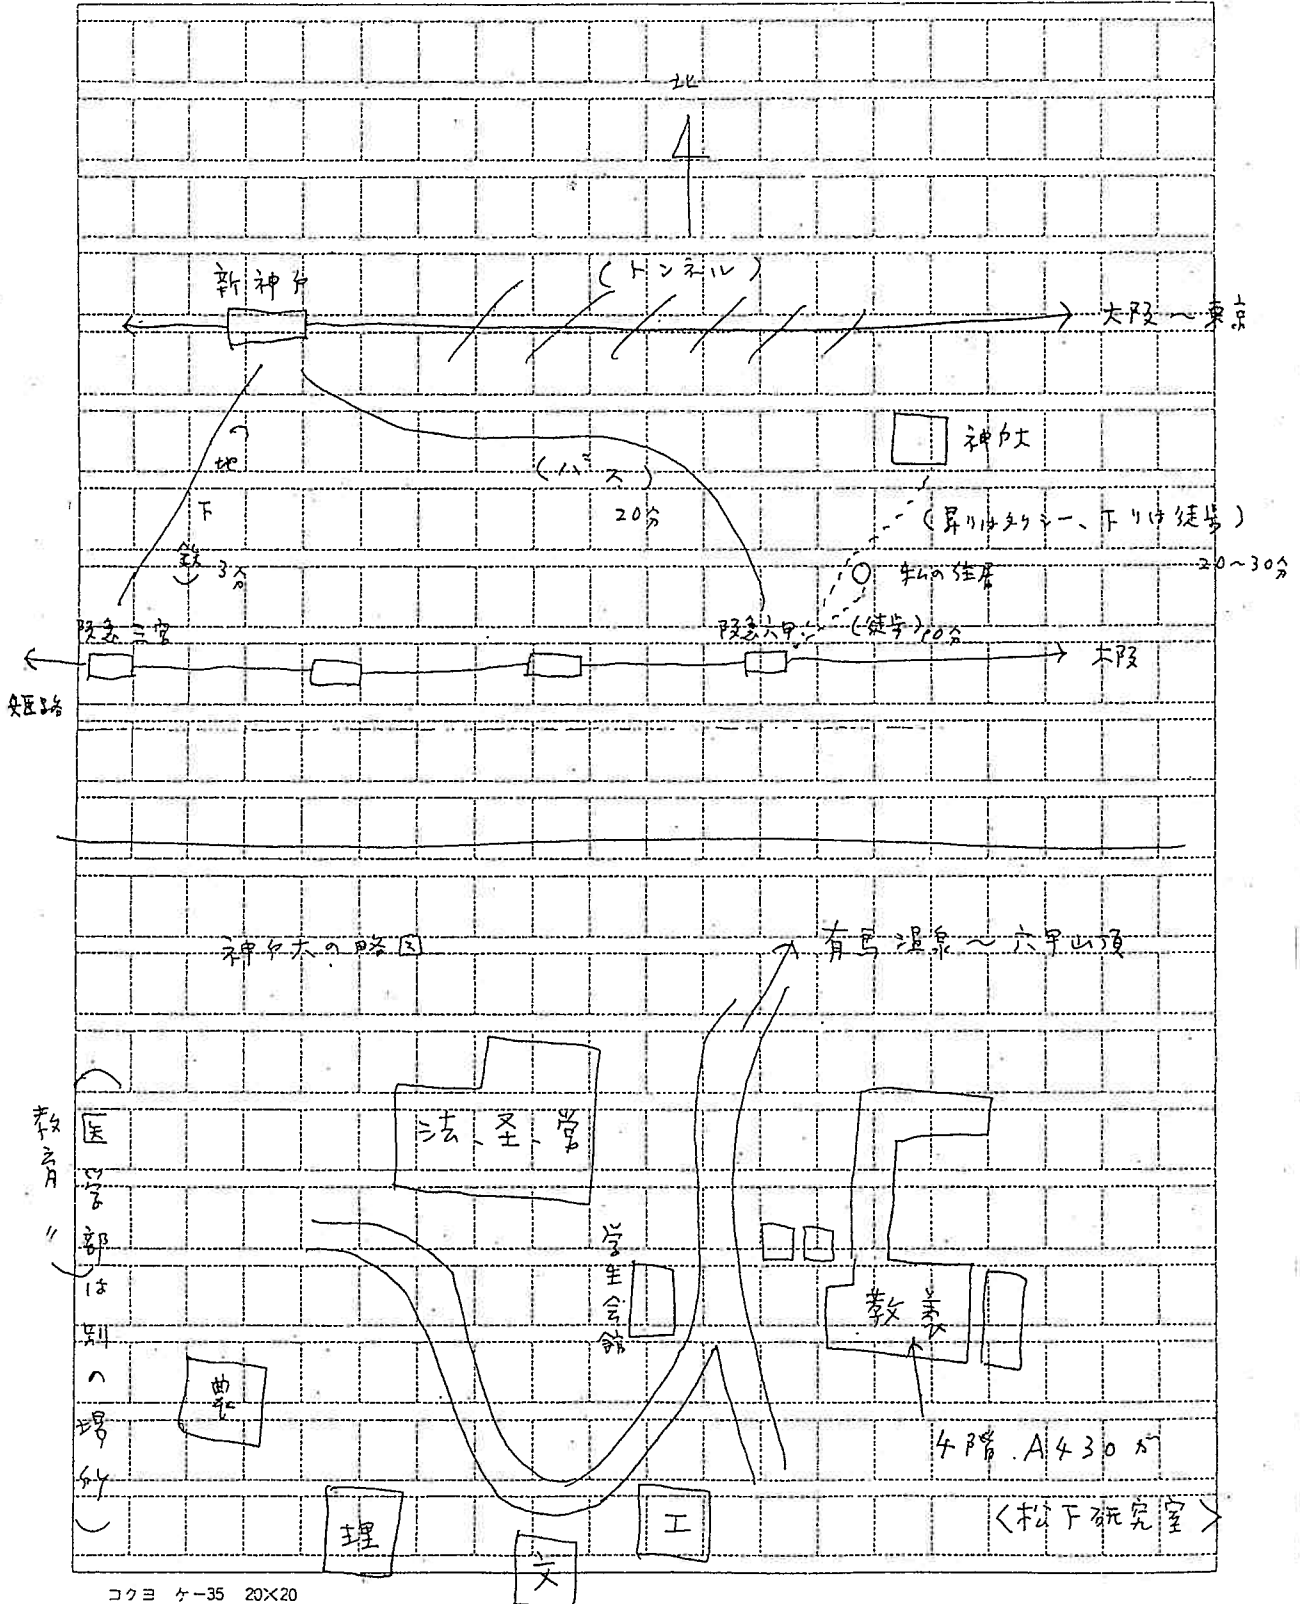 北
(トンネル)
新神戸
大阪〜東京
神戸大
(地下鉄) 3分
(バス)
20分
(昇りはタクシー、下りは徒歩)
20〜30分
私の住居
阪急三宮
阪急六甲
(徒歩)10分
大阪
姫路
神戸大の略図
有馬温泉〜六甲山頂
法、経、営
(医学部は別の場所)
教育 〃
学生会館
教養
農
4階.A430が
〈松下研究室〉
理
文
工
コクヨ ケー35 20×20